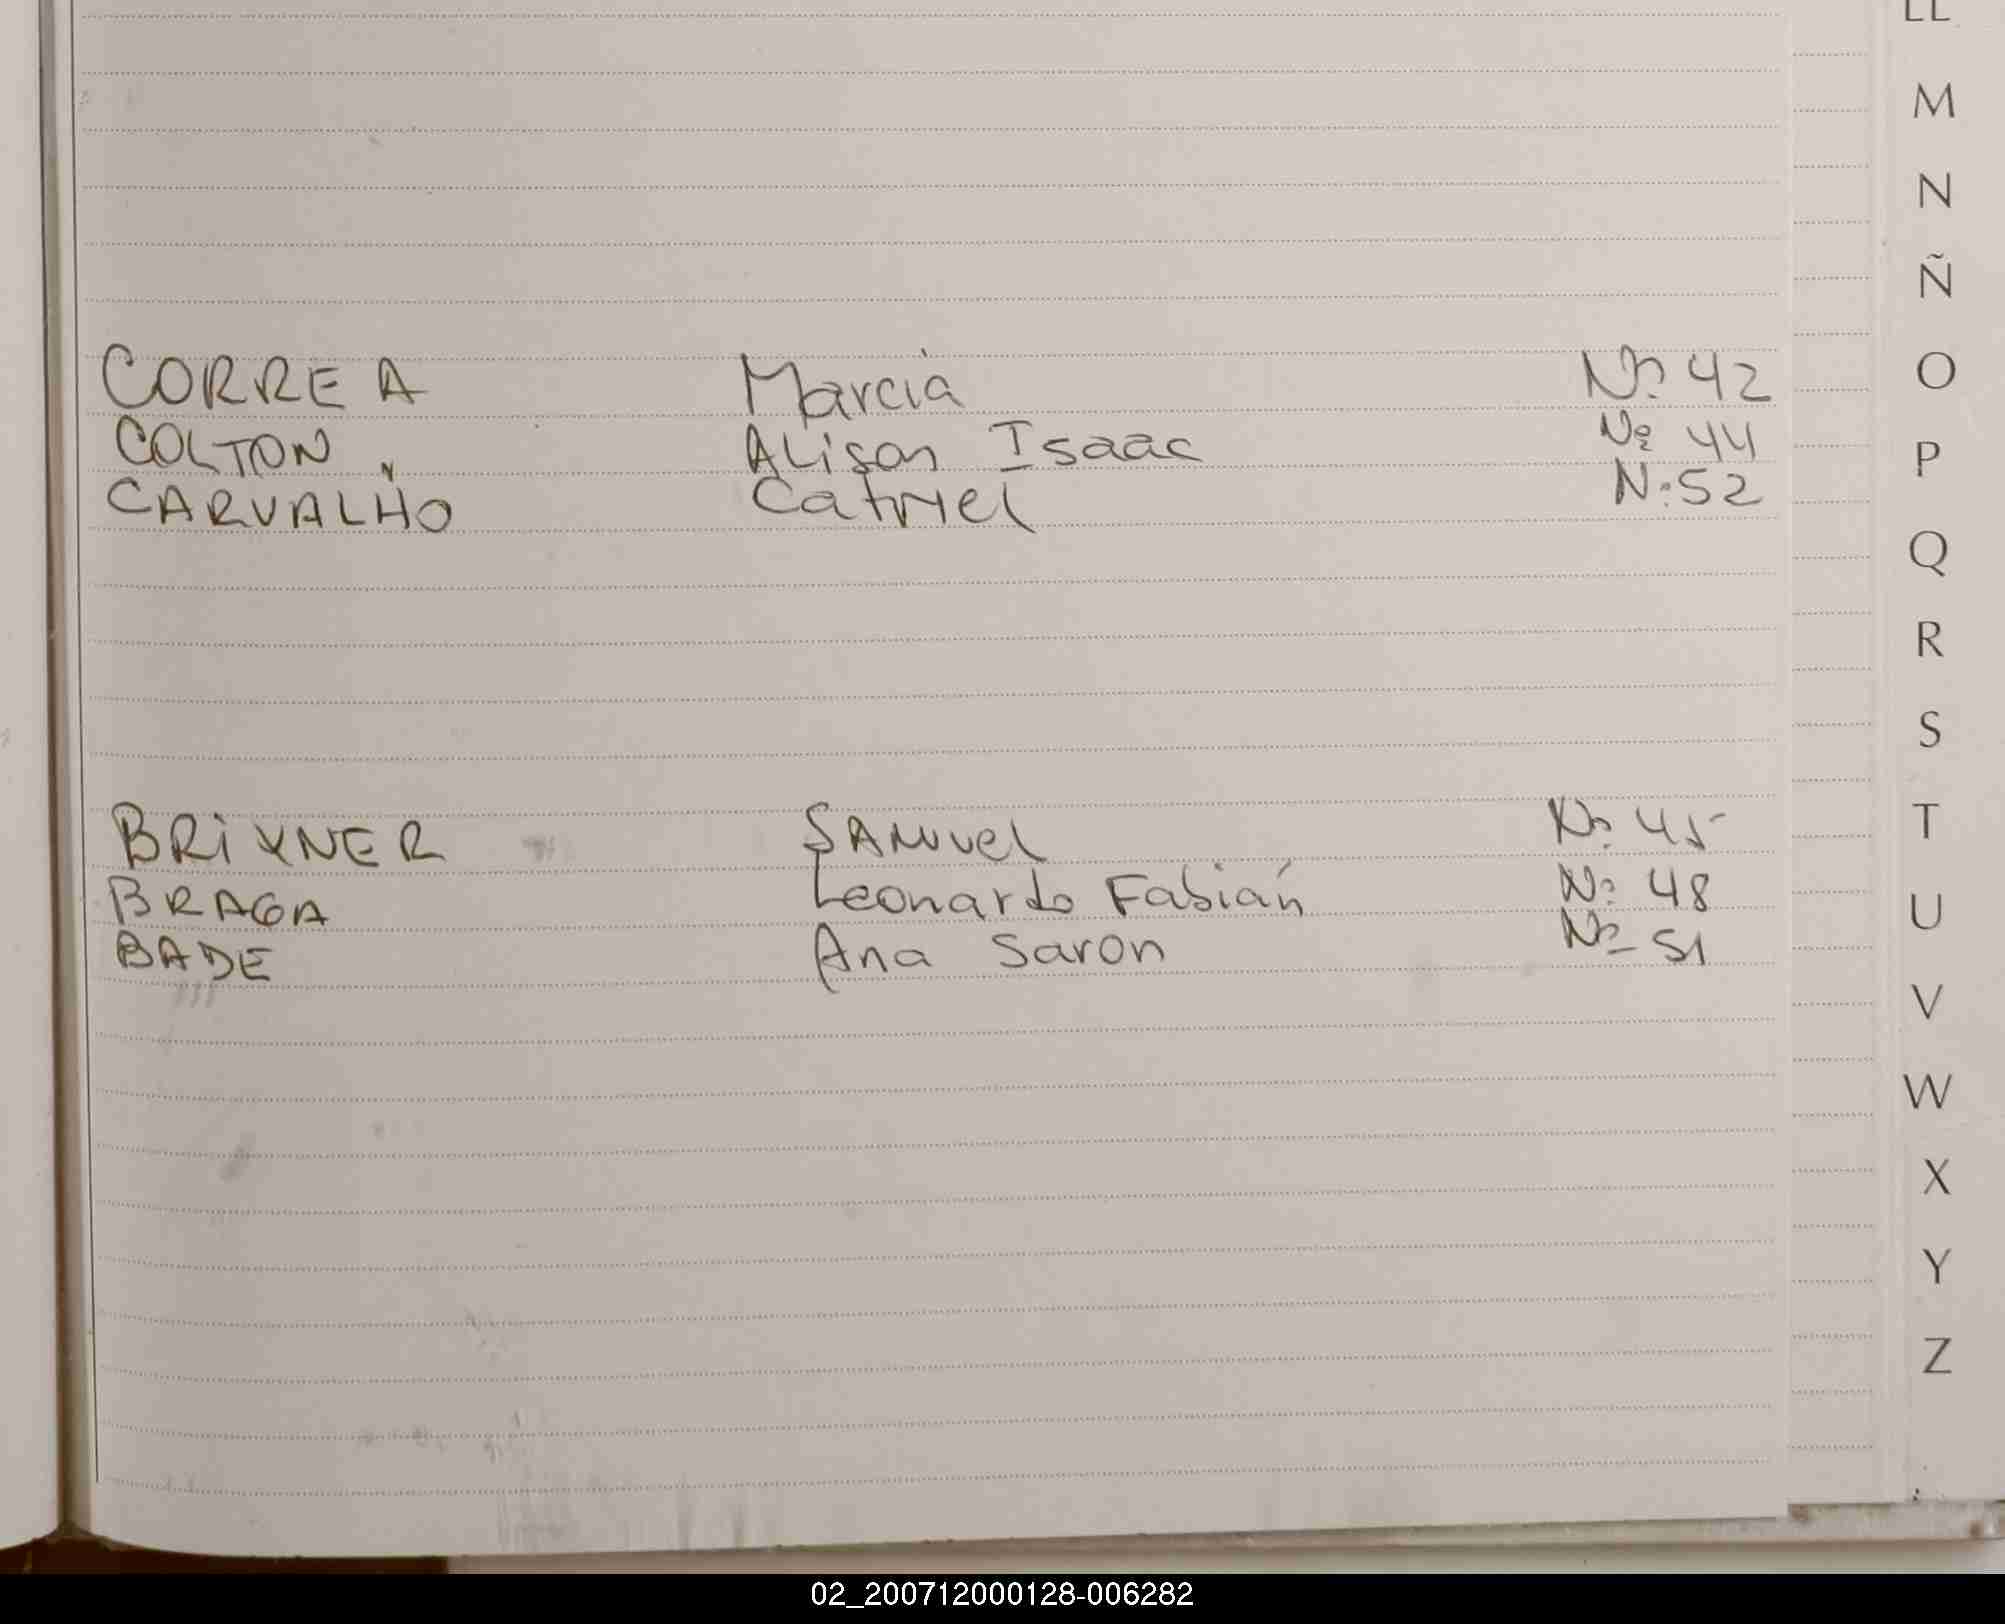 LL
M
N
Ñ
O
P
Q
R
S
T
U
V
W
X
Y
Z
CORREA Marcia Nº 42
COLTON, Alison Isaac Nº 44
CARVALHO Catriel N: 52
BRiXNER SAMuel Nº 45
BRAGA Leonardo Fabián Nº 48
BADE Ana Saron Nº 51
02_200712000128-006282